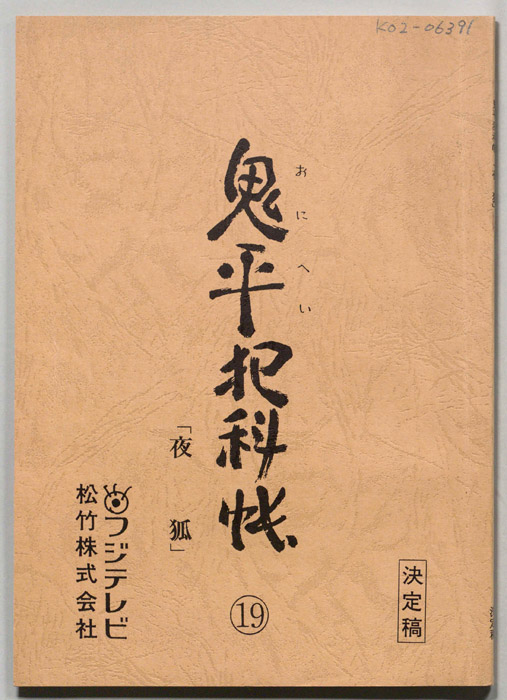 K02-06391
おにへい
鬼平犯科帳
「夜狐」
フジテレビ
松竹株式会社
⑲
決定稿